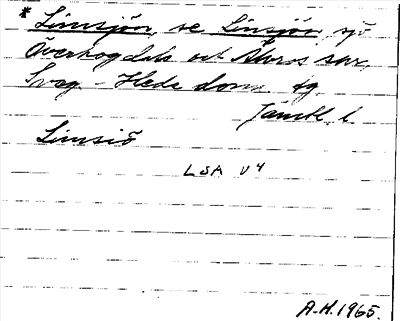 * Limsjön, se Linsjön, sjö
Överhogdals och Älvros snr,
Sveg - Hede doms. tg
Jämtl. l.
Limsiö
LSA V4
A.H. 1965.